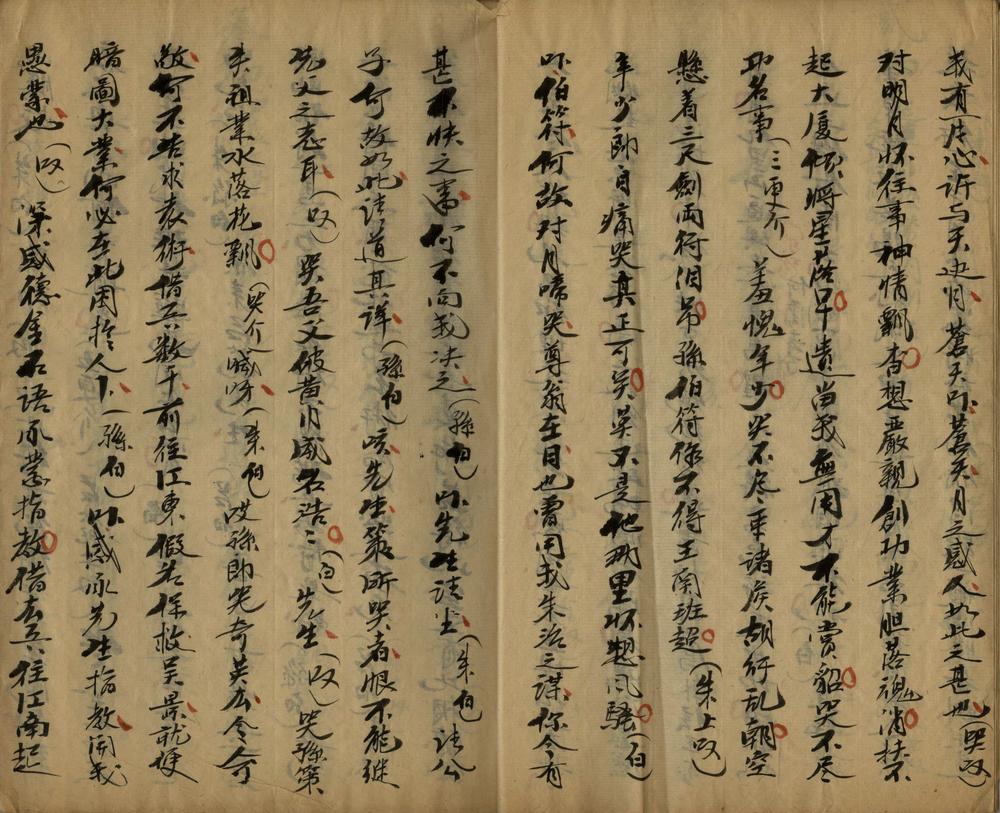 我有一片心訴与天边月蒼天吓蒼天月之感人如此之甚也(哭叹)
对明月怀往事神情飘杳想嚴親創功業胆落魂消扶不
起大厦倾将星落早遗当我無用才不能賞貂哭不尽
功名事(三更介)羞愧年少哭不尽来诸侯胡行乱朝空
懸着三尺劍両行泪吊孫伯符條不得王関班超(朱上叹)
年少郎自痛哭真正可笑莫不是他那里怀想风騷(白)
吓伯符何故对月啼哭尊翁在日也曽用我朱治之謀你今有
甚不快之事何不向我决之(孫白)吓先生請坐(朱白)請公
子何故如此請道其详(孫白)咳先生策所哭者恨不能继
先父之志耳(叹)哭吾父破黄月威名浩ミ(白)先生(叹)哭孫策
失祖業水落花飘(哭介)喊呀(朱白)哎孫郎咒奇英広今命
敵何不告求袁術借兵数千前往江東假若保救吴景就便
暗圖大業何必在此困扵人下(孫白)吓感承先生指教開我
愚蒙也(叹)深感德金石語承蒙指教借去兵往江南起